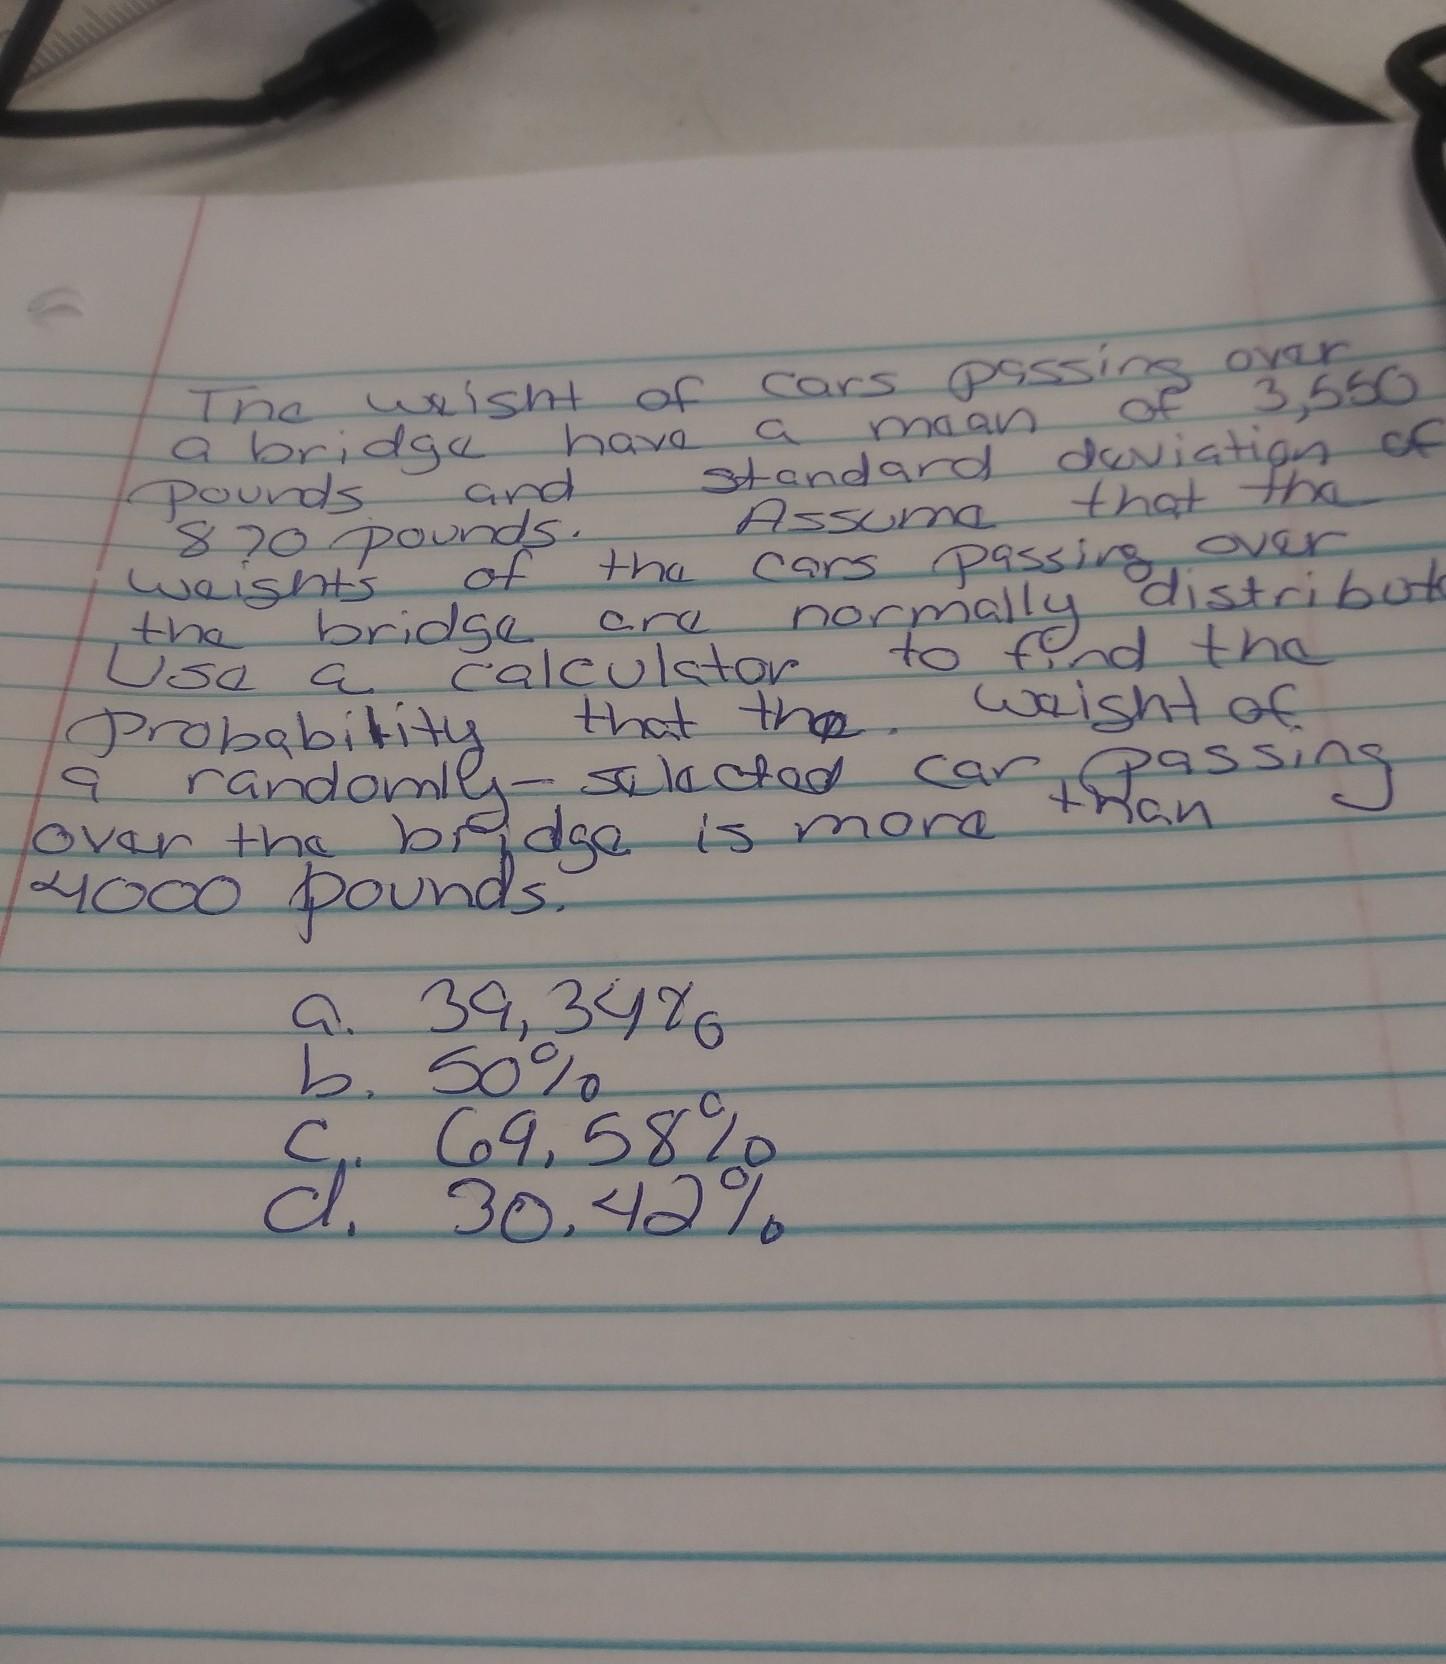 The weight of cars passing over
a bridge have a mean of 3,550
pounds and standard deviation of
870 pounds. Assume that the
weights of the cars passing over
the bridge are normally distribut
Use a calculator to find the
probability that the. weight of
a randomly-selected car passing
over the bridge is more than
4000 pounds.
a. 39,34%
b. 50%
c. 69,58%
d. 30.42%